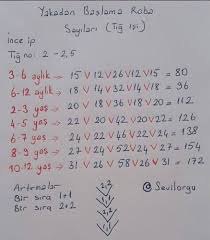 Yakadan Başlama Roba
Sayıları (Tığ İşi)
İnce ip
Tığ no: 2 - 2,5
3-6 aylık → 15 V 12 V 26 V 12 V 15 = 80
6-12 aylık → 18 V 14 V 32 V 14 V 18 = 96
2-3 yaş → 20 V 18 V 36 V 18 V 20 = 112
4-5 yaş → 22 V 20 V 42 V 20 V 22 = 126
6-7 yaş → 24 V 22 V 46 V 22 V 24 = 138
8-9 yaş → 27 V 24 V 52 V 24 V 27 = 154
10-12 yaş → 31 V 26 V 58 V 26 V 31 = 172
Artırmalar
Bir sıra 1+1
Bir sıra 2+2
@Sevilorgu